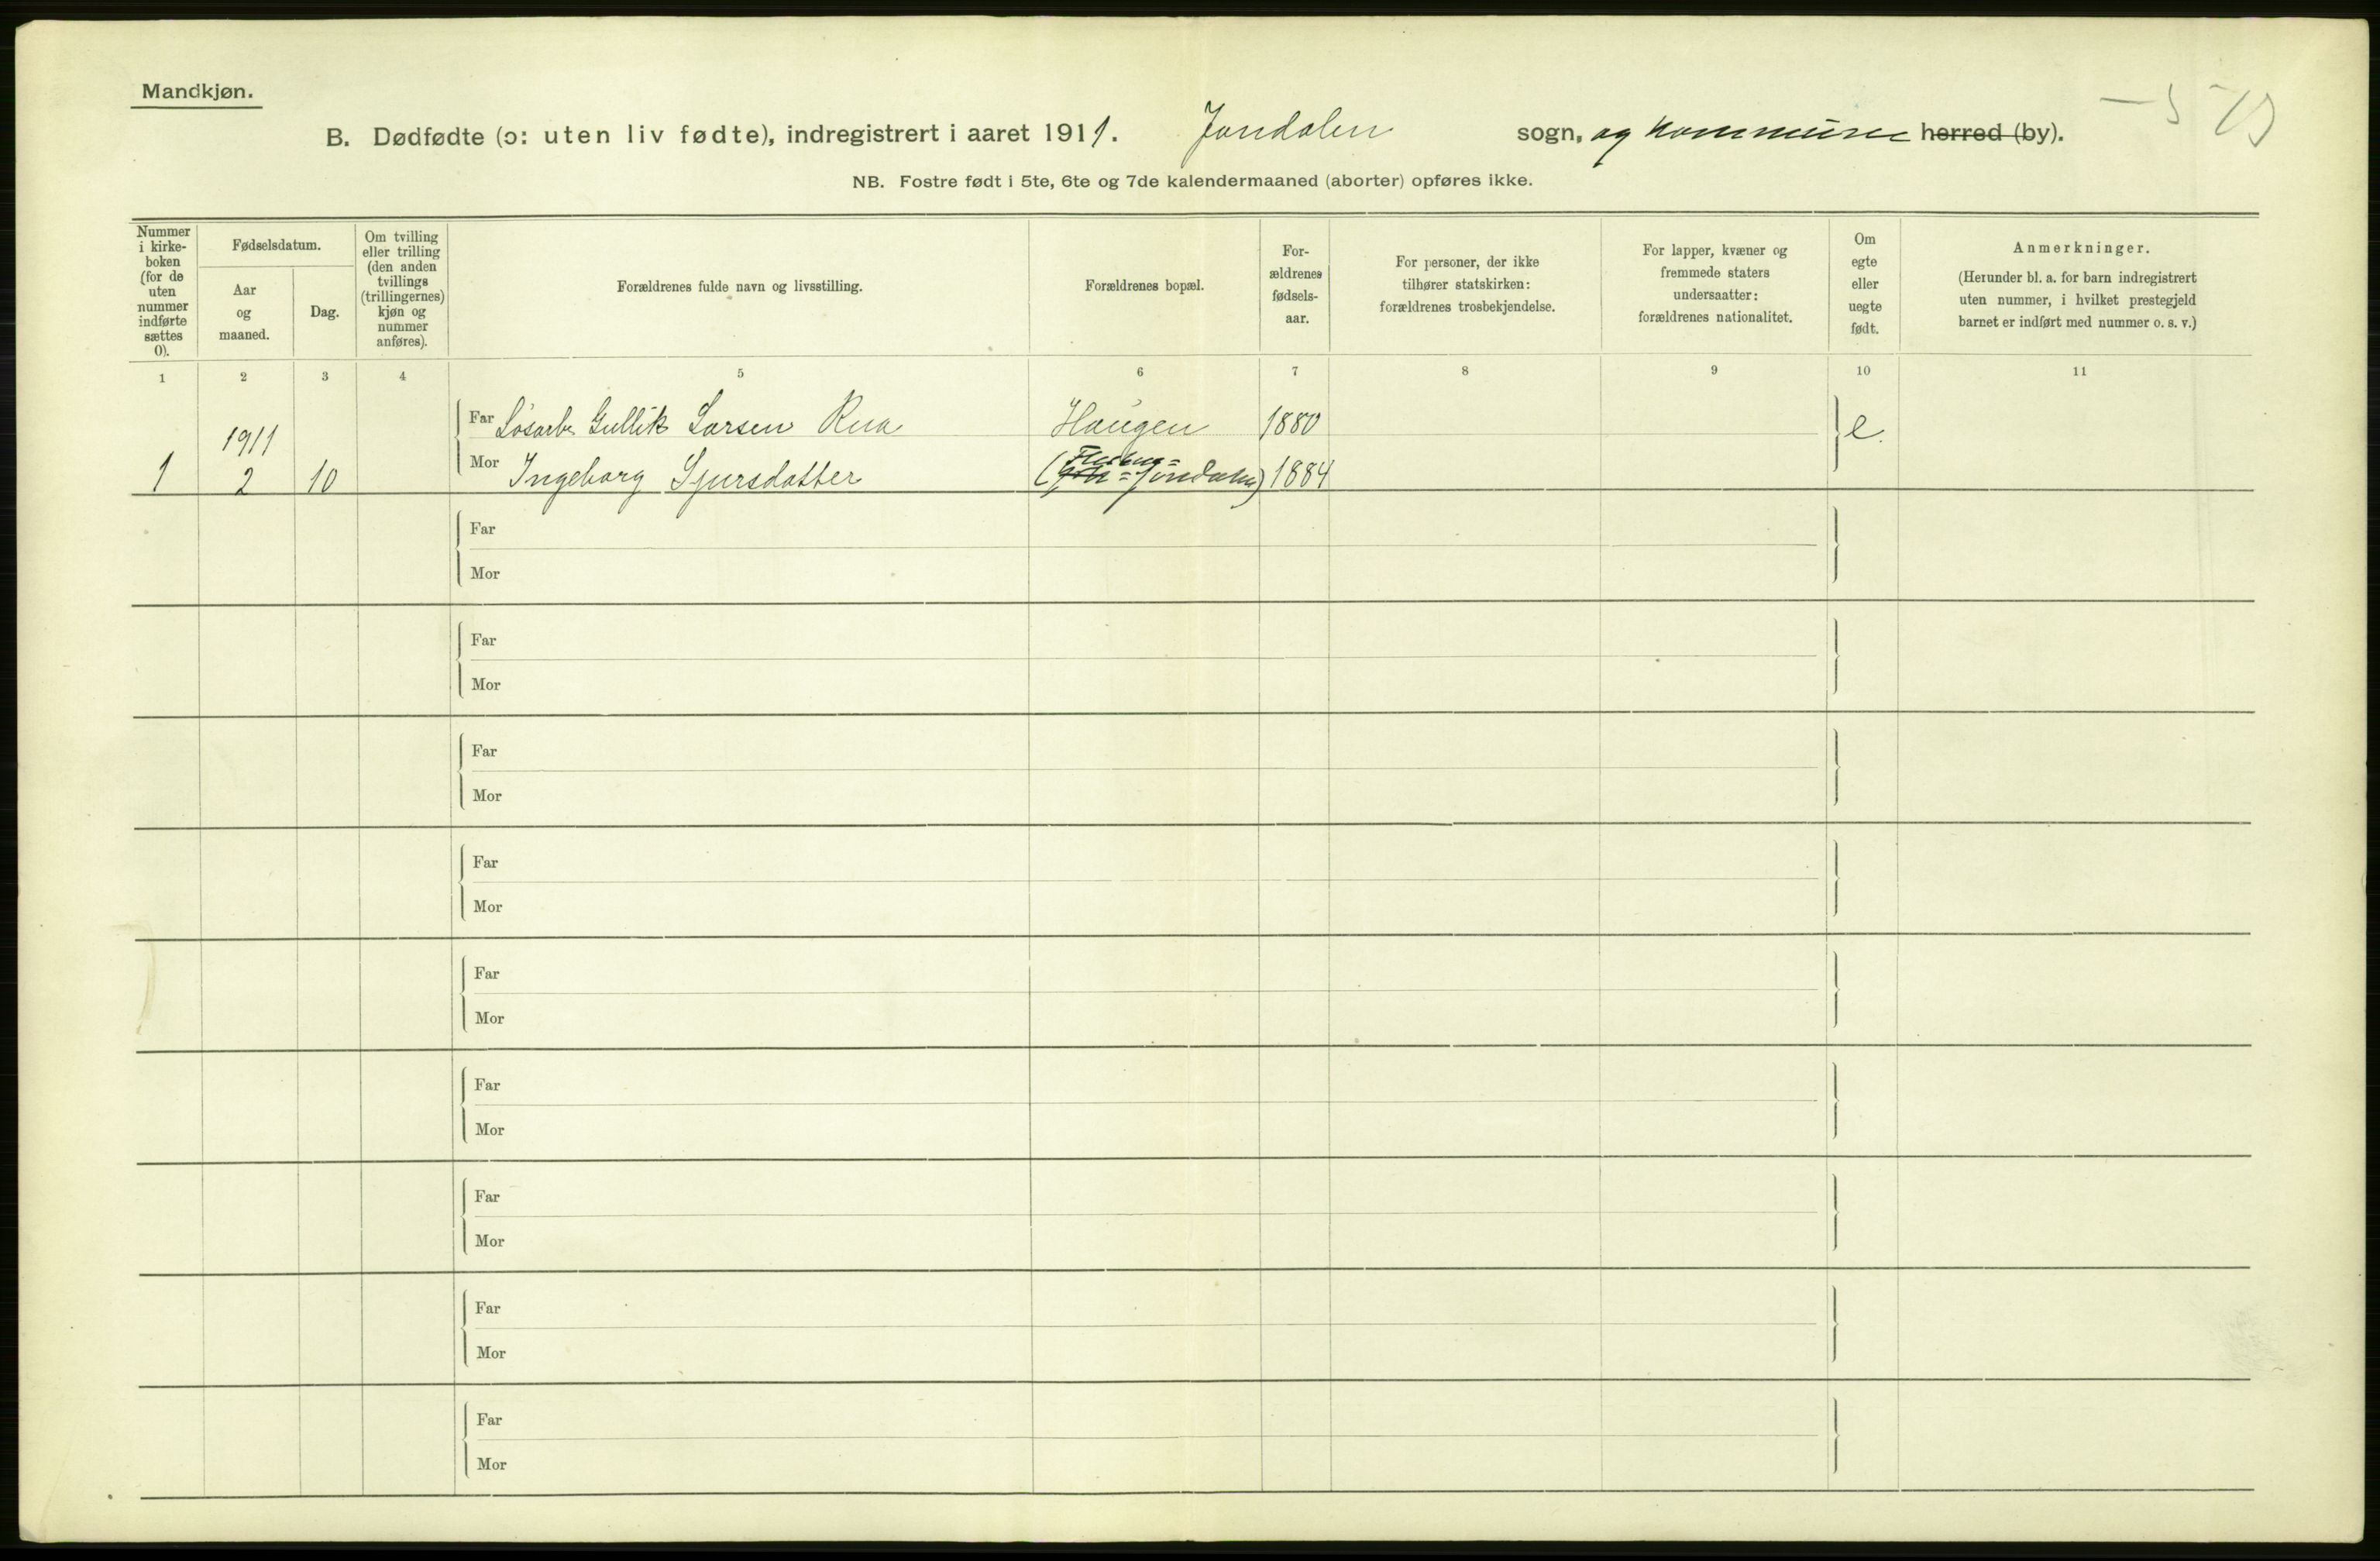 Mandkjøn.
B. Dødfødte (ɔ: uten liv fødte), indregistrert i aaret 1911. Jondalen sogn, og kommune herred (by).
NB. Fostre født i 5te, 6te og 7de kalendermaaned (aborter) opføres ikke.
Nummer
i kirke-
boken
(for de
uten
nummer
indførte
sættes
0).
Fødselsdatum.
Aar
og
maaned.
Dag.
Om tvilling
eller trilling
(den anden
tvillings
(trillingernes)
kjøn og
nummer
anføres).
Forældrenes fulde navn og livsstilling.
Forældrenes bopæl.
For-
ældrenes
fødsels-
aar.
For personer, der ikke
tilhører statskirken:
forældrenes trosbekjendelse.
For lapper, kvæner og
fremmede staters
undersaatter:
forældrenes nationalitet.
Om
egte
eller
uegte
født.
Anmerkninger.
(Herunder bl. a. for barn indregistrert
uten nummer, i hvilket prestegjeld
barnet er indført med nummer o. s. v.)
1 2 3 4 5 6 7 8 9 10 11
1911
Far Løsarb. Gullik Larsen Rua Haugen 1880 e.
1 2 10 Mor Ingeborg Sjursdatter (Flesberg = Jondalen) 1884
Far
Mor
Far
Mor
Far
Mor
Far
Mor
Far
Mor
Far
Mor
Far
Mor
Far
Mor
Far
Mor